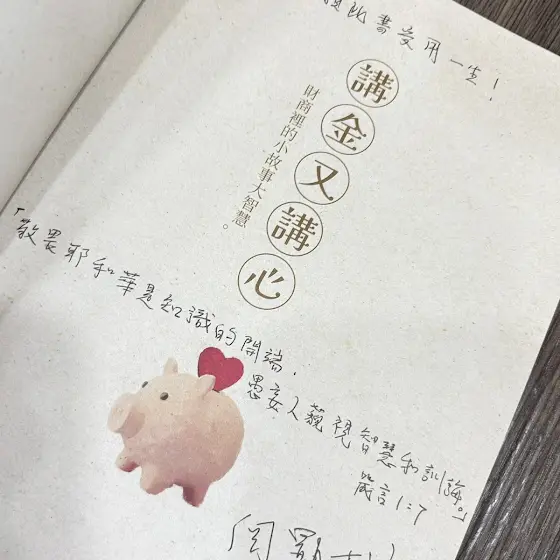 此書受用一生！
講金又講心
財商裡的小故事大智慧。
「敬畏耶和華是知識的開端，
愚妄人藐視智慧和訓誨。」
箴言1:7